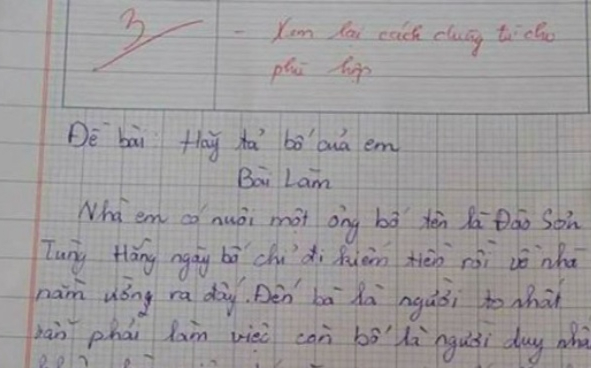 3
- Xem lại cách dùng từ cho
phù hợp
Đề bài: Hãy tả bố của em
Bài Làm
Nhà em có nuôi một ông bố tên là Đào Sơn
Tùng Hằng ngày bố chỉ đi kiếm tiền rồi về nhà
nằm ưỡng ra đấy. Đến bà là người to nhất
vẫn phải làm việc còn bố là người duy nhấ